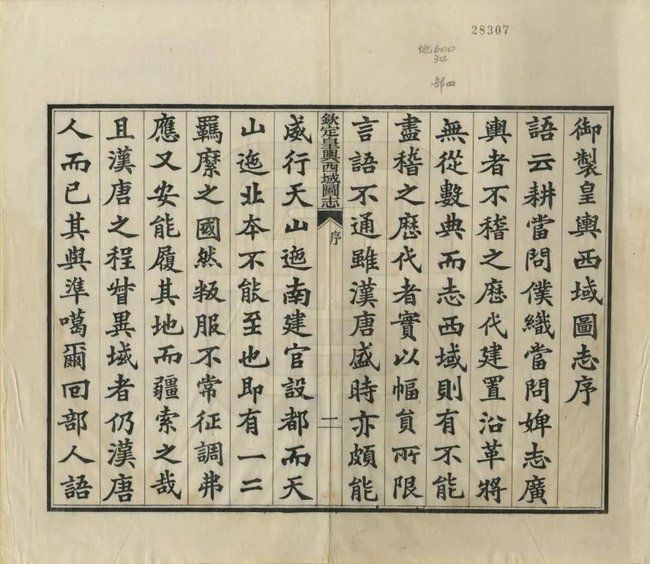 28307
地600
34
部四
御製皇輿西域圖志序
語云耕當問僕織當問婢志廣
輿者不稽之歷代建置沿革將
無從數典而志西域則有不能
盡稽之歷代者實以幅員所限
言語不通雖漢唐盛時亦頗能
欽定皇輿西域圖志
序
一
威行天山迤南建官設都而天
山迤北本不能至也即有一二
羈縻之國然叛服不常征調弗
應又安能履其地而疆索之哉
且漢唐之程督異域者仍漢唐
人而已其與準噶爾回部人語